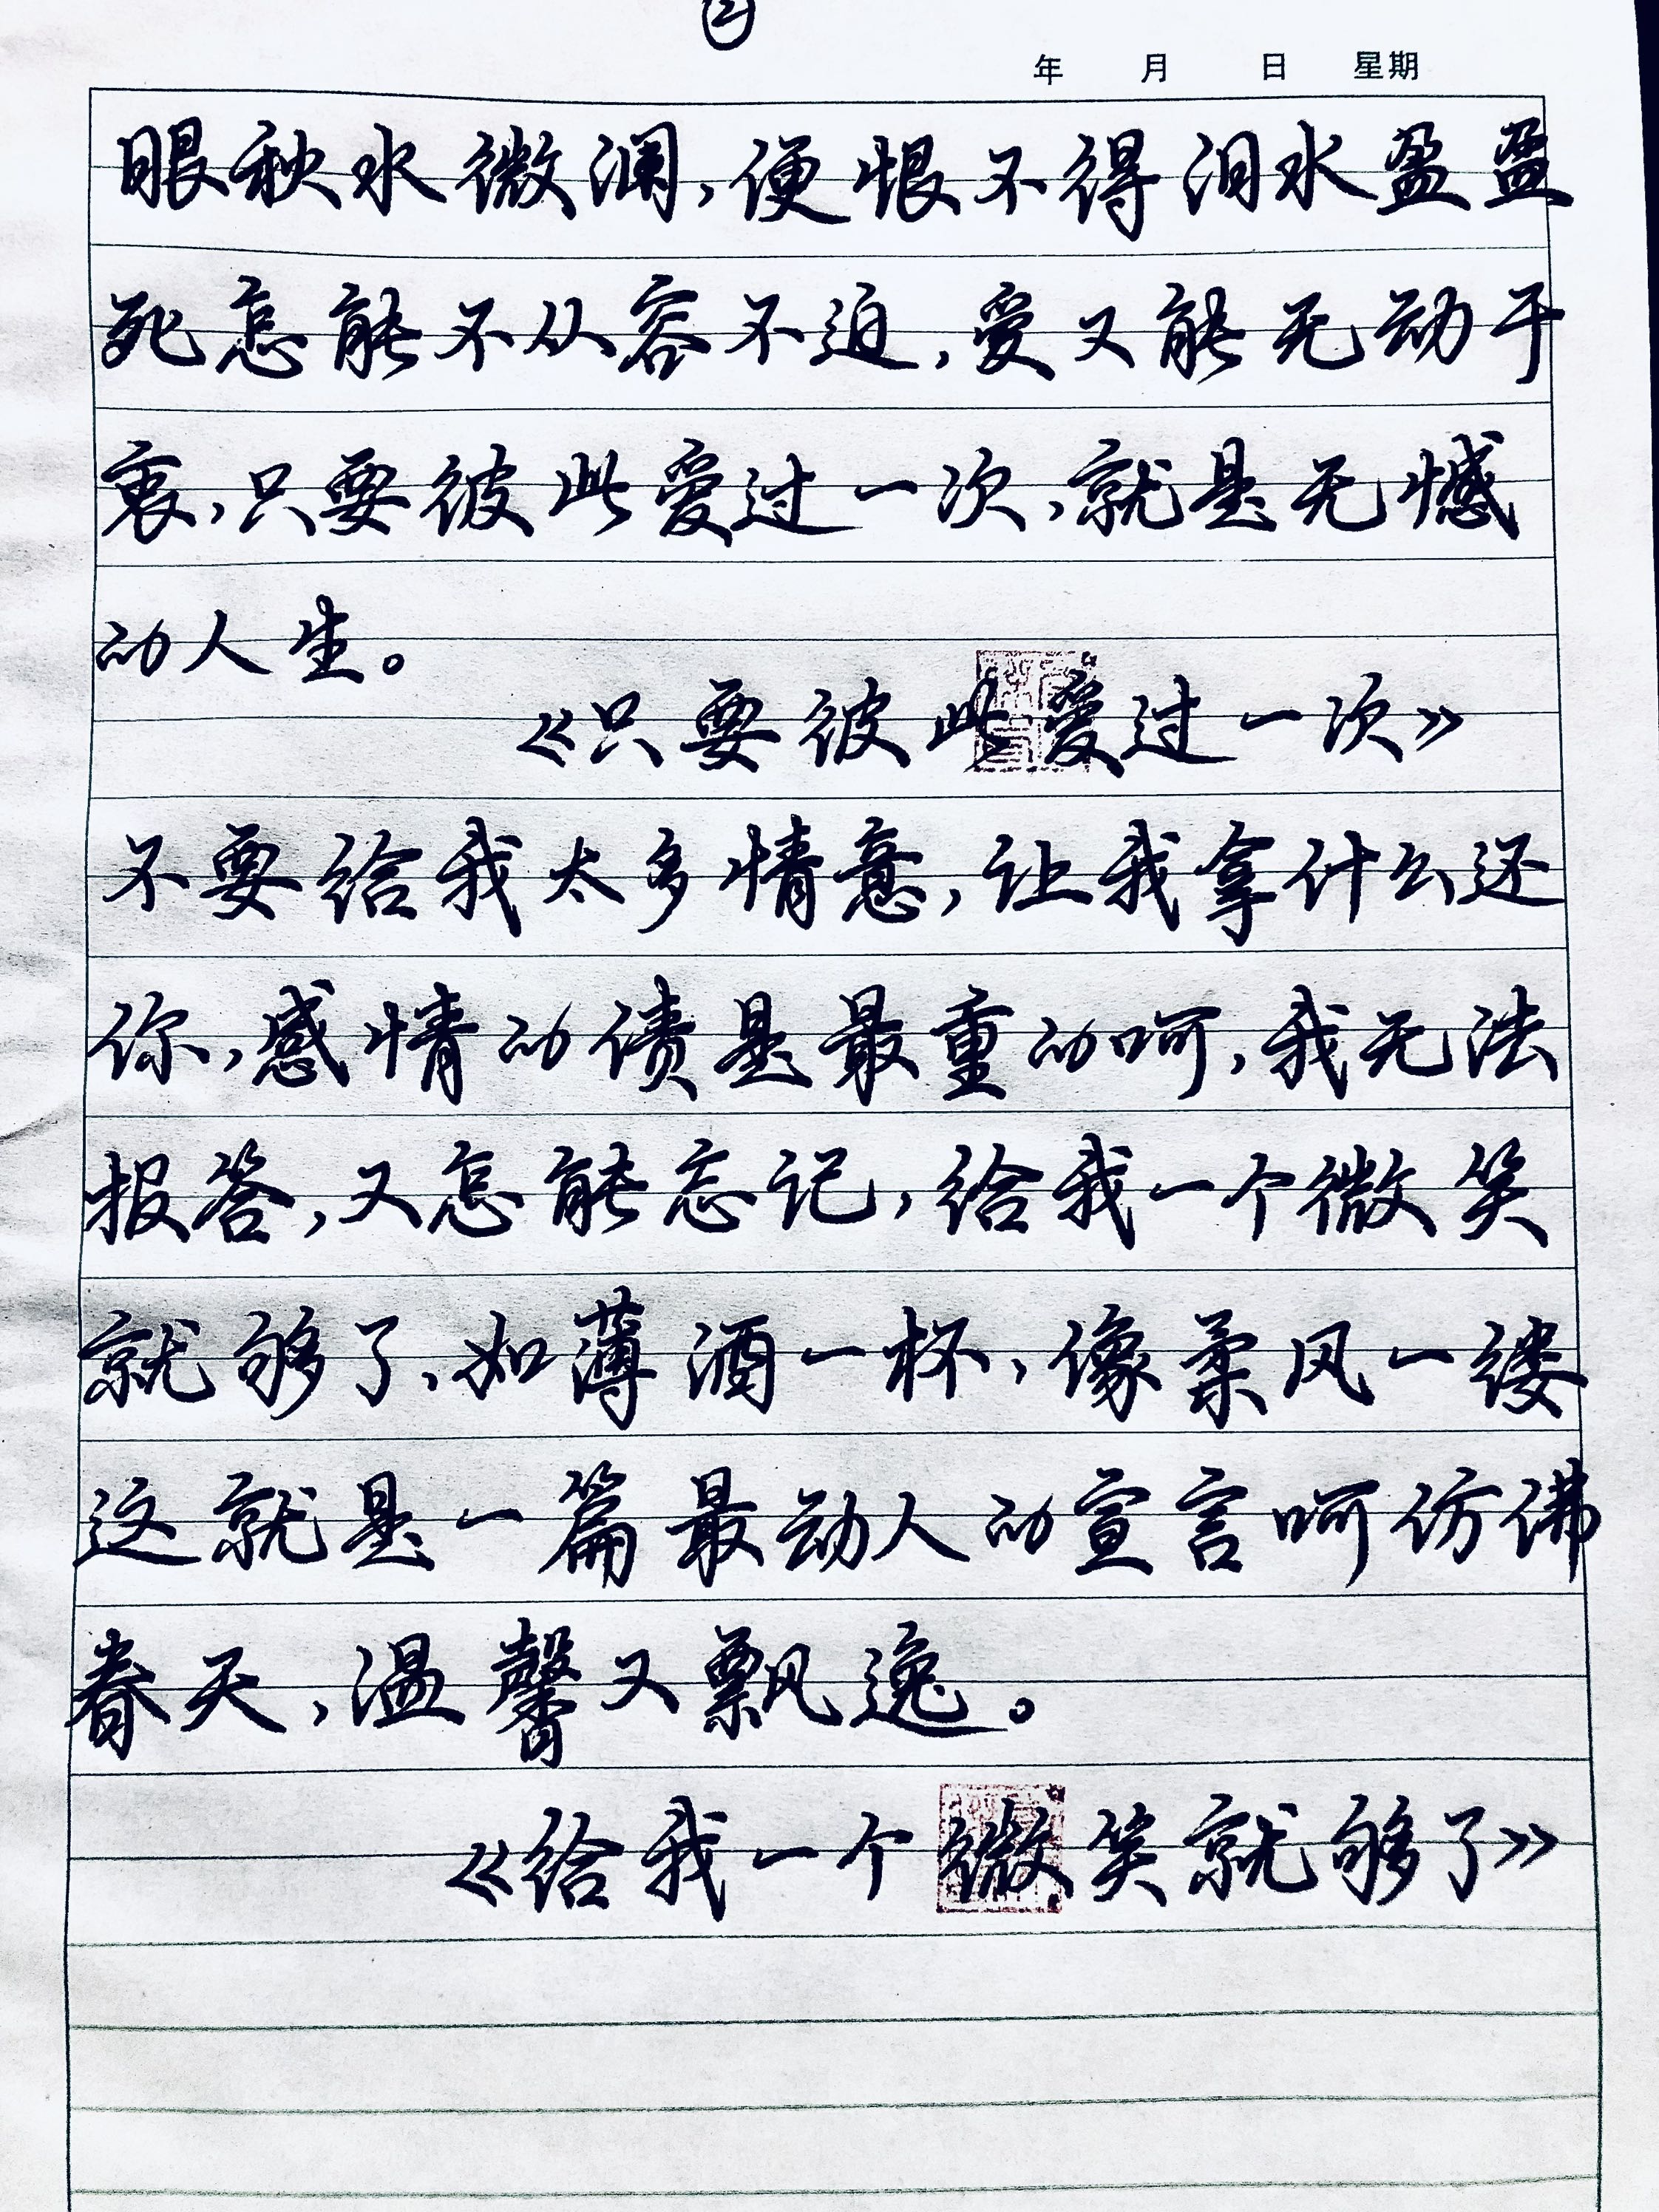 ②
年 月 日 星期
眼秋水微澜,便恨不得泪水盈盈
死怎能不从容不迫,爱又能无动于
衷,只要彼此爱过一次,就是无憾
的人生。
《只要彼此爱过一次》
不要给我太多情意,让我拿什么还
你,感情的债是最重的呵,我无法
报答,又怎能忘记,给我一个微笑
就够了,如薄酒一杯,像柔风一缕
这就是一篇最动人的宣言呵仿佛
春天,温馨又飘逸。
《给我一个微笑就够了》